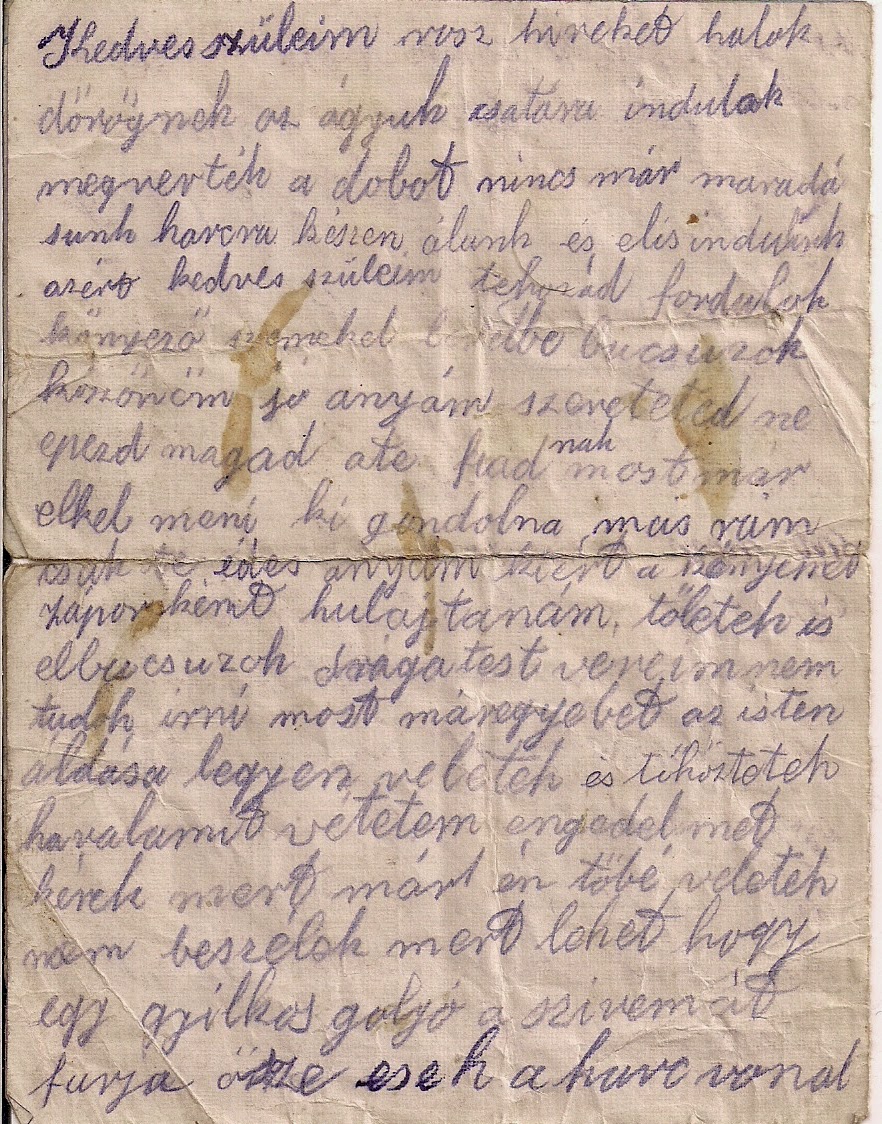 Kedves szüleim rosz hireket halok
dörögnek az ágyuk csatára indulak
megverték a dobot nincs már maradá
sunk harcra készen álunk és elis indulunk
azért kedves szüleim tehozád fordulok
könyező szemekel bucsuzok
köszönöm jó anyám szereteted ne
epezd magad ate fiadnak most már
elkel meni ki gondolna mas rám
csak te édes anyám kiért a könyimet
záporként hulajtanám, töletek is
elbucsuzok drága test vereim nem
tudok irni most máregyebet az isten
áldása legyen veletek és tihöztetek
havalamit vétetem engedelmet
kérek mert márt én töbé veletek
nem beszélek mert lehet hogy
egy gyilkos goljó a szivemát
furja ösze esek a harc vonal